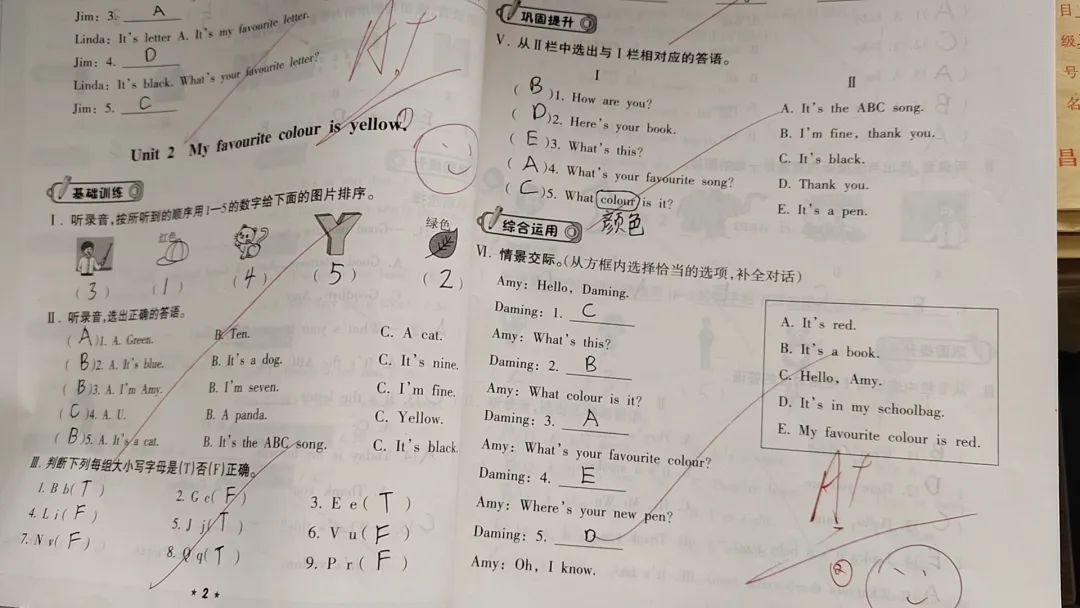 Jim: 3. A
Linda: It's letter A. It's my favourite letter.
Jim: 4. D
Linda: It's black. What's your favourite letter?
Jim: 5. C
A+
①
Unit 2 My favourite colour is yellow.
基础训练
Ⅰ. 听录音,按所听到的顺序用1—5的数字给下面的图片排序。
红色
Y
绿色
(3) (1) (4) (5) (2)
Ⅱ. 听录音,选出正确的答语。
(A)1. A. Green. B. Ten. C. A cat.
(B)2. A. It's blue. B. It's a dog. C. It's nine.
(B)3. A. I'm Amy. B. I'm seven. C. I'm fine.
(C)4. A. U. B. A panda. C. Yellow.
(B)5. A. It's a cat. B. It's the ABC song. C. It's black.
Ⅲ. 判断下列每组大小写字母是(T)否(F)正确。
1. B b(T) 2. G e(F) 3. E e(T)
4. L i(F) 5. J j(T) 6. V u(F)
7. N v(F) 8. Q q(T) 9. P r(F)
* 2 *
巩固提升
Ⅴ. 从Ⅱ栏中选出与Ⅰ栏相对应的答语。
Ⅰ Ⅱ
(B)1. How are you? A. It's the ABC song.
(D)2. Here's your book. B. I'm fine, thank you.
(E)3. What's this? C. It's black.
(A)4. What's your favourite song? D. Thank you.
(C)5. What colour is it? E. It's a pen.
颜色
综合运用
Ⅵ. 情景交际。(从方框内选择恰当的选项,补全对话)
Amy: Hello, Daming.
Daming: 1. C
Amy: What's this?
Daming: 2. B
Amy: What colour is it?
Daming: 3. A
Amy: What's your favourite colour?
Daming: 4. E
Amy: Where's your new pen?
Daming: 5. D
Amy: Oh, I know.
A. It's red.
B. It's a book.
C. Hello, Amy.
D. It's in my schoolbag.
E. My favourite colour is red.
A+
②
目
级
号
名
昌